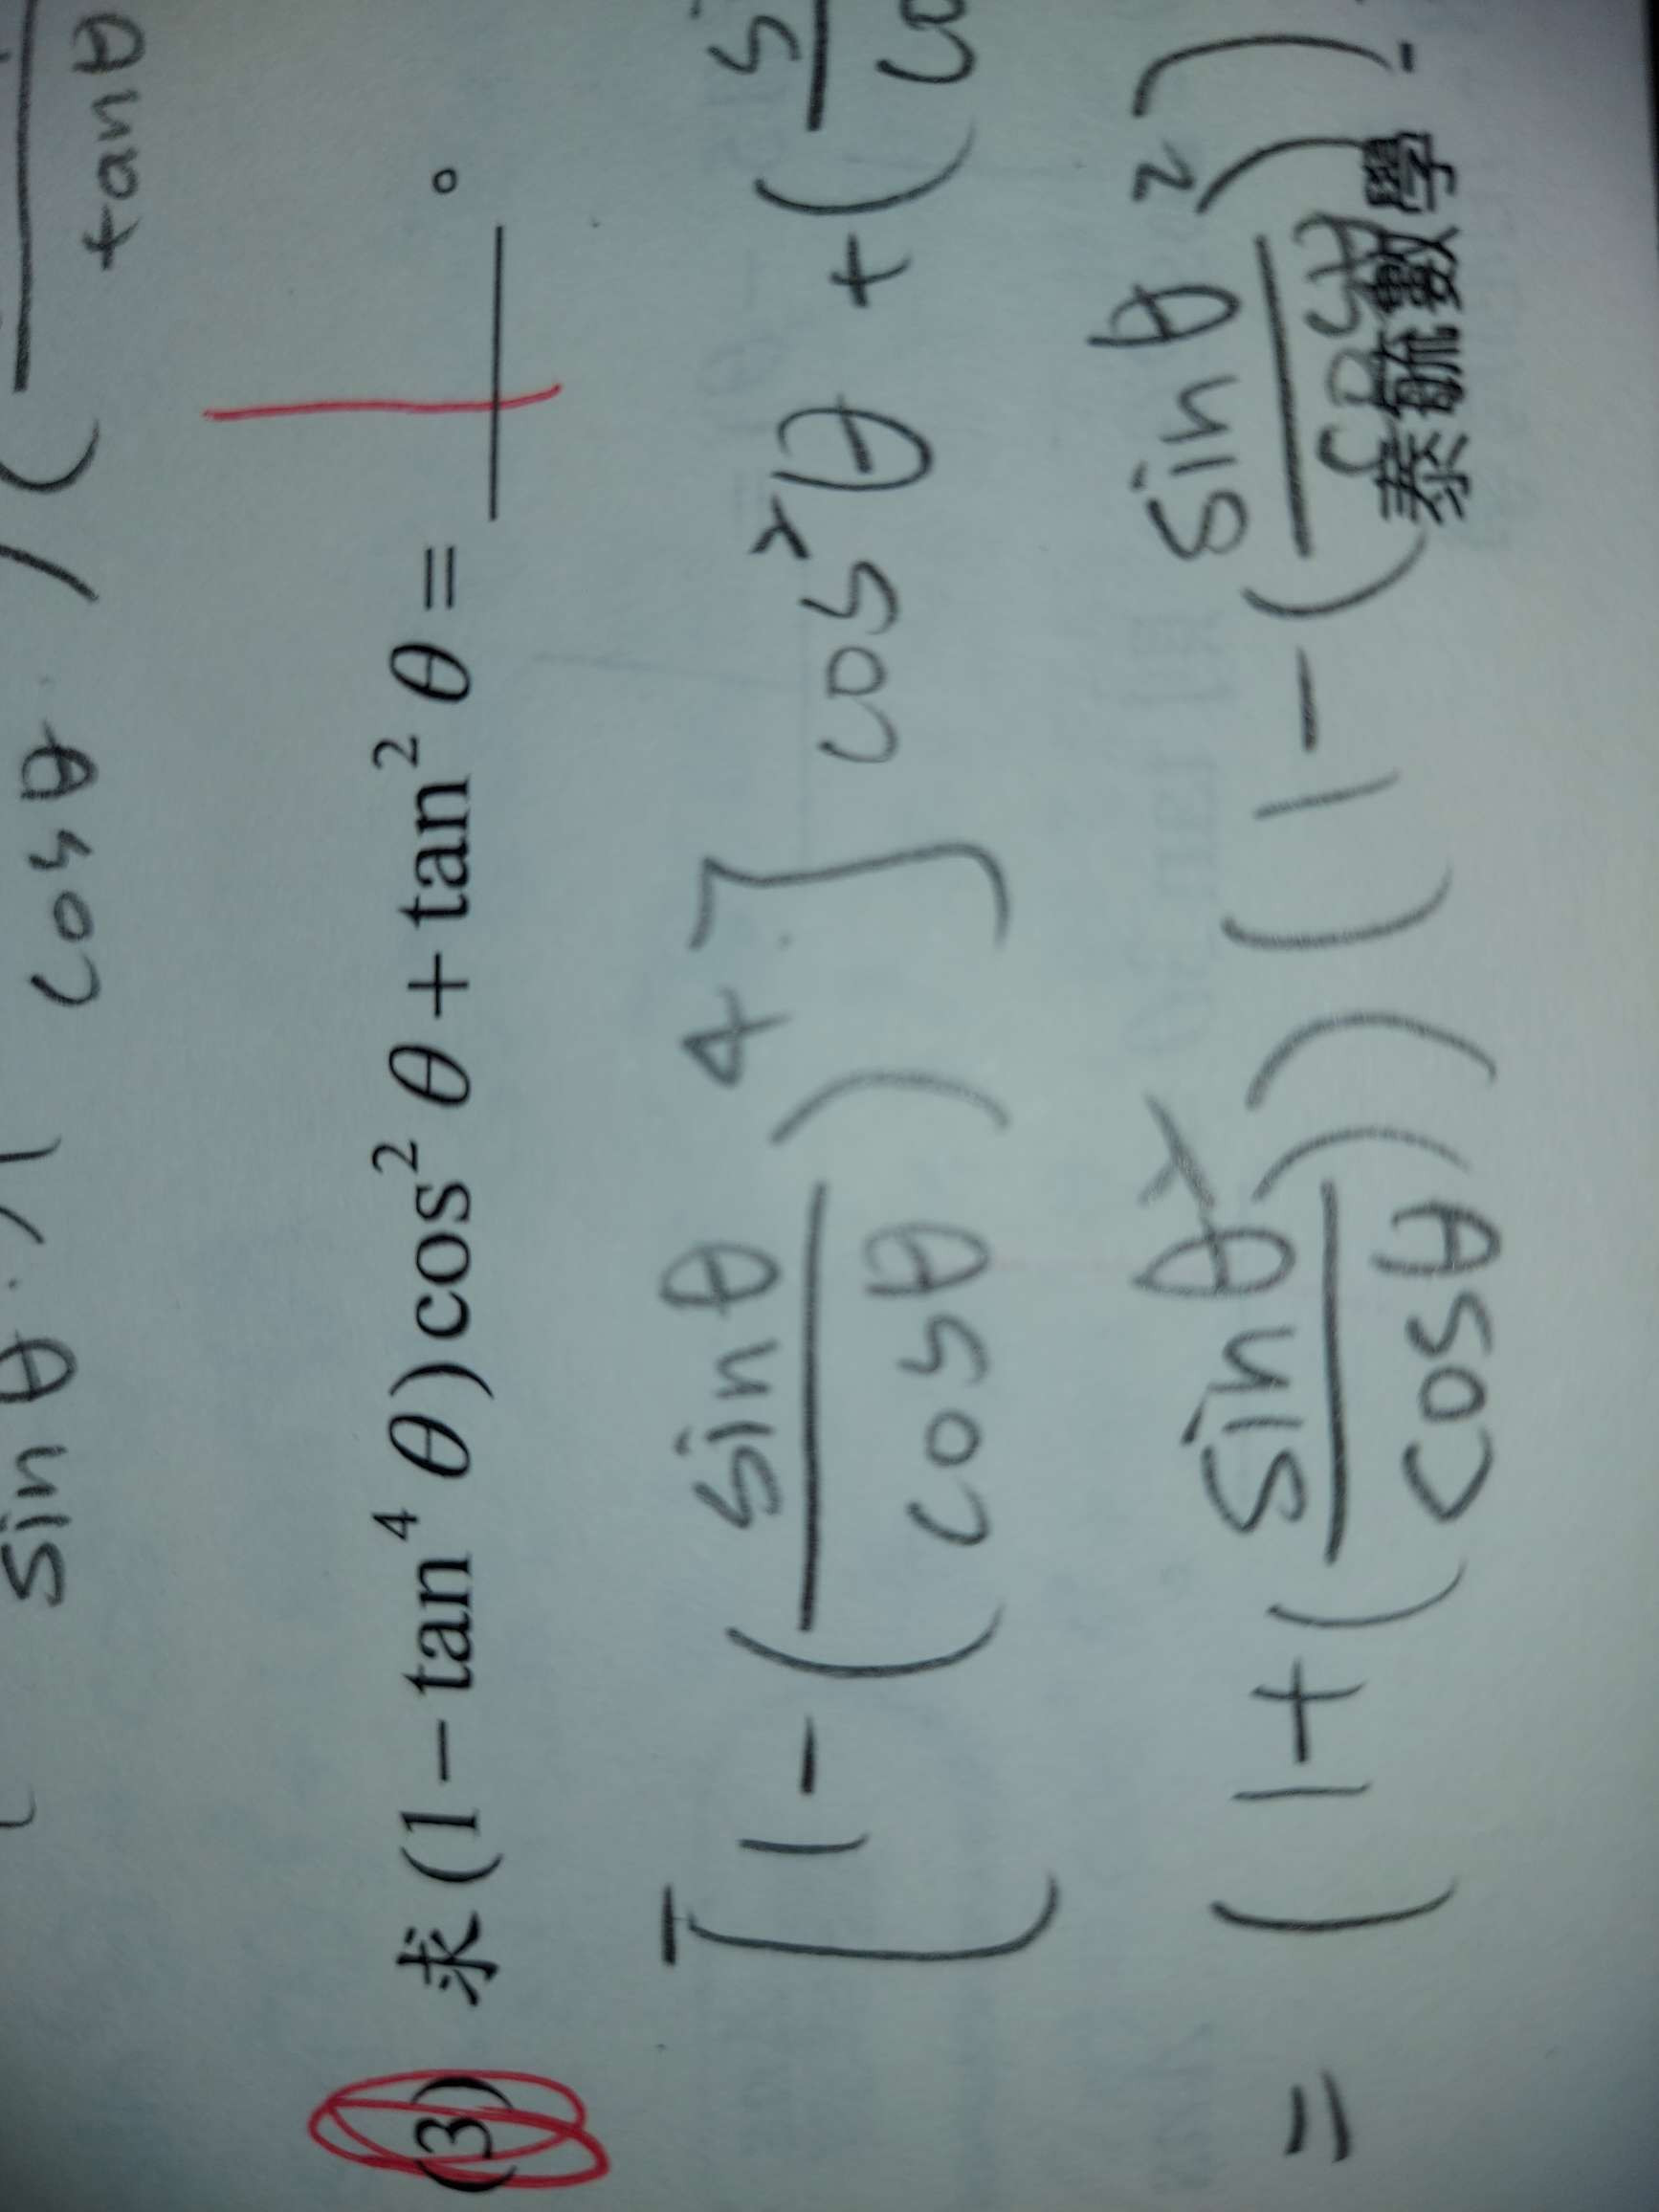 sinθ · 1 cosθ / ( tanθ
(3) 求(1−tan⁴θ)cos²θ+tan²θ=____。 1
[1-(sinθ/cosθ)⁴]cos²θ+(
=(1+(sinθ/cosθ)²)(1-(sinθ/cosθ)²)
泰毓數學